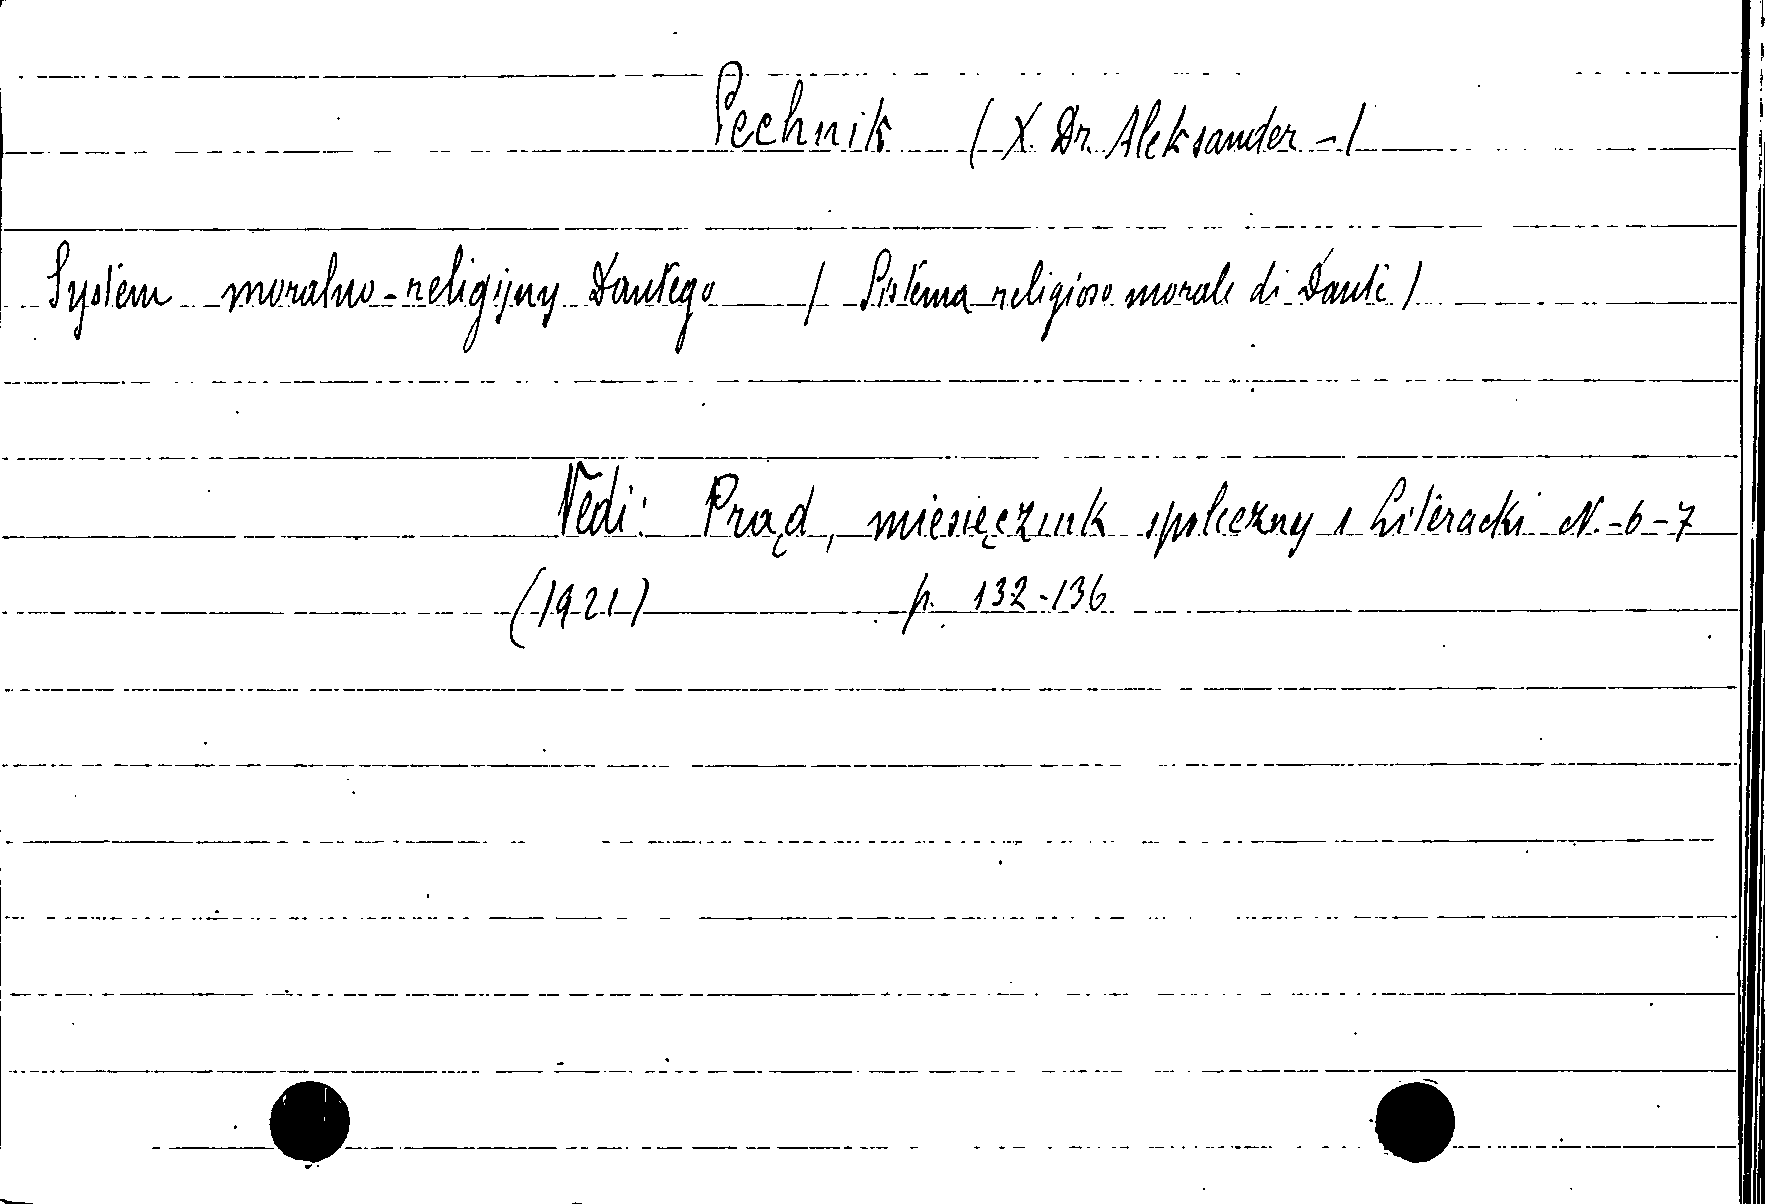 Pechnik (X. Dr. Aleksander -)
System moralno-religijny Dantego (Sistema religioso morale di Dante)
Vedi: Prąd, miesięcznik spoleczny i Literacki N.-6-7
(1921) p. 132-136